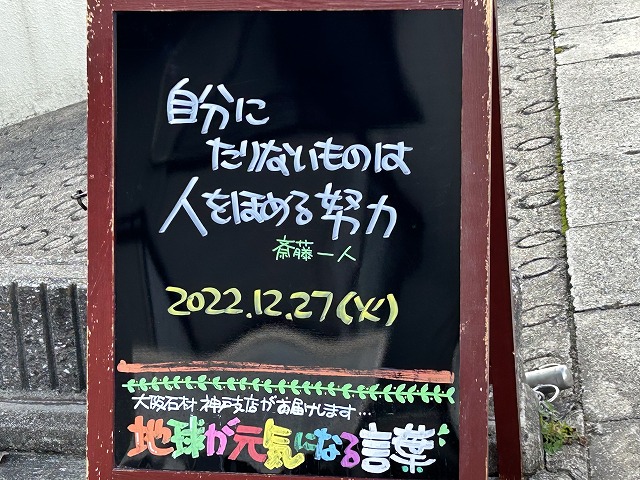 自分に
たりないものは
人をほめる努力
斎藤一人
2022.12.27(火)
大阪石材 神戸支店がお届けします...
地球が元気になる言葉